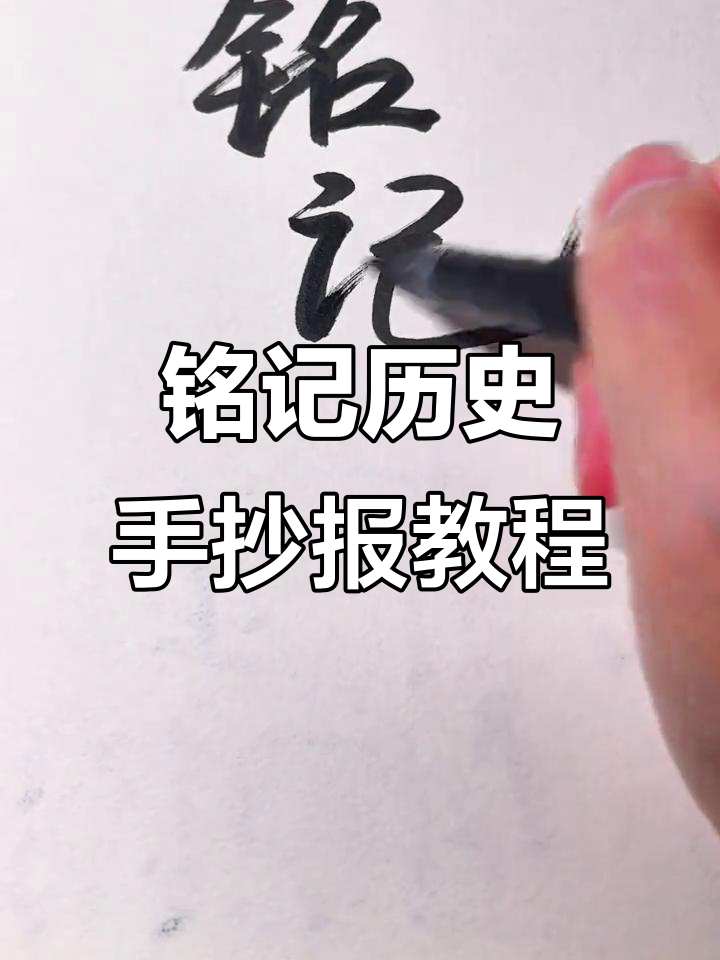 铭
记
铭记历史
手抄报教程